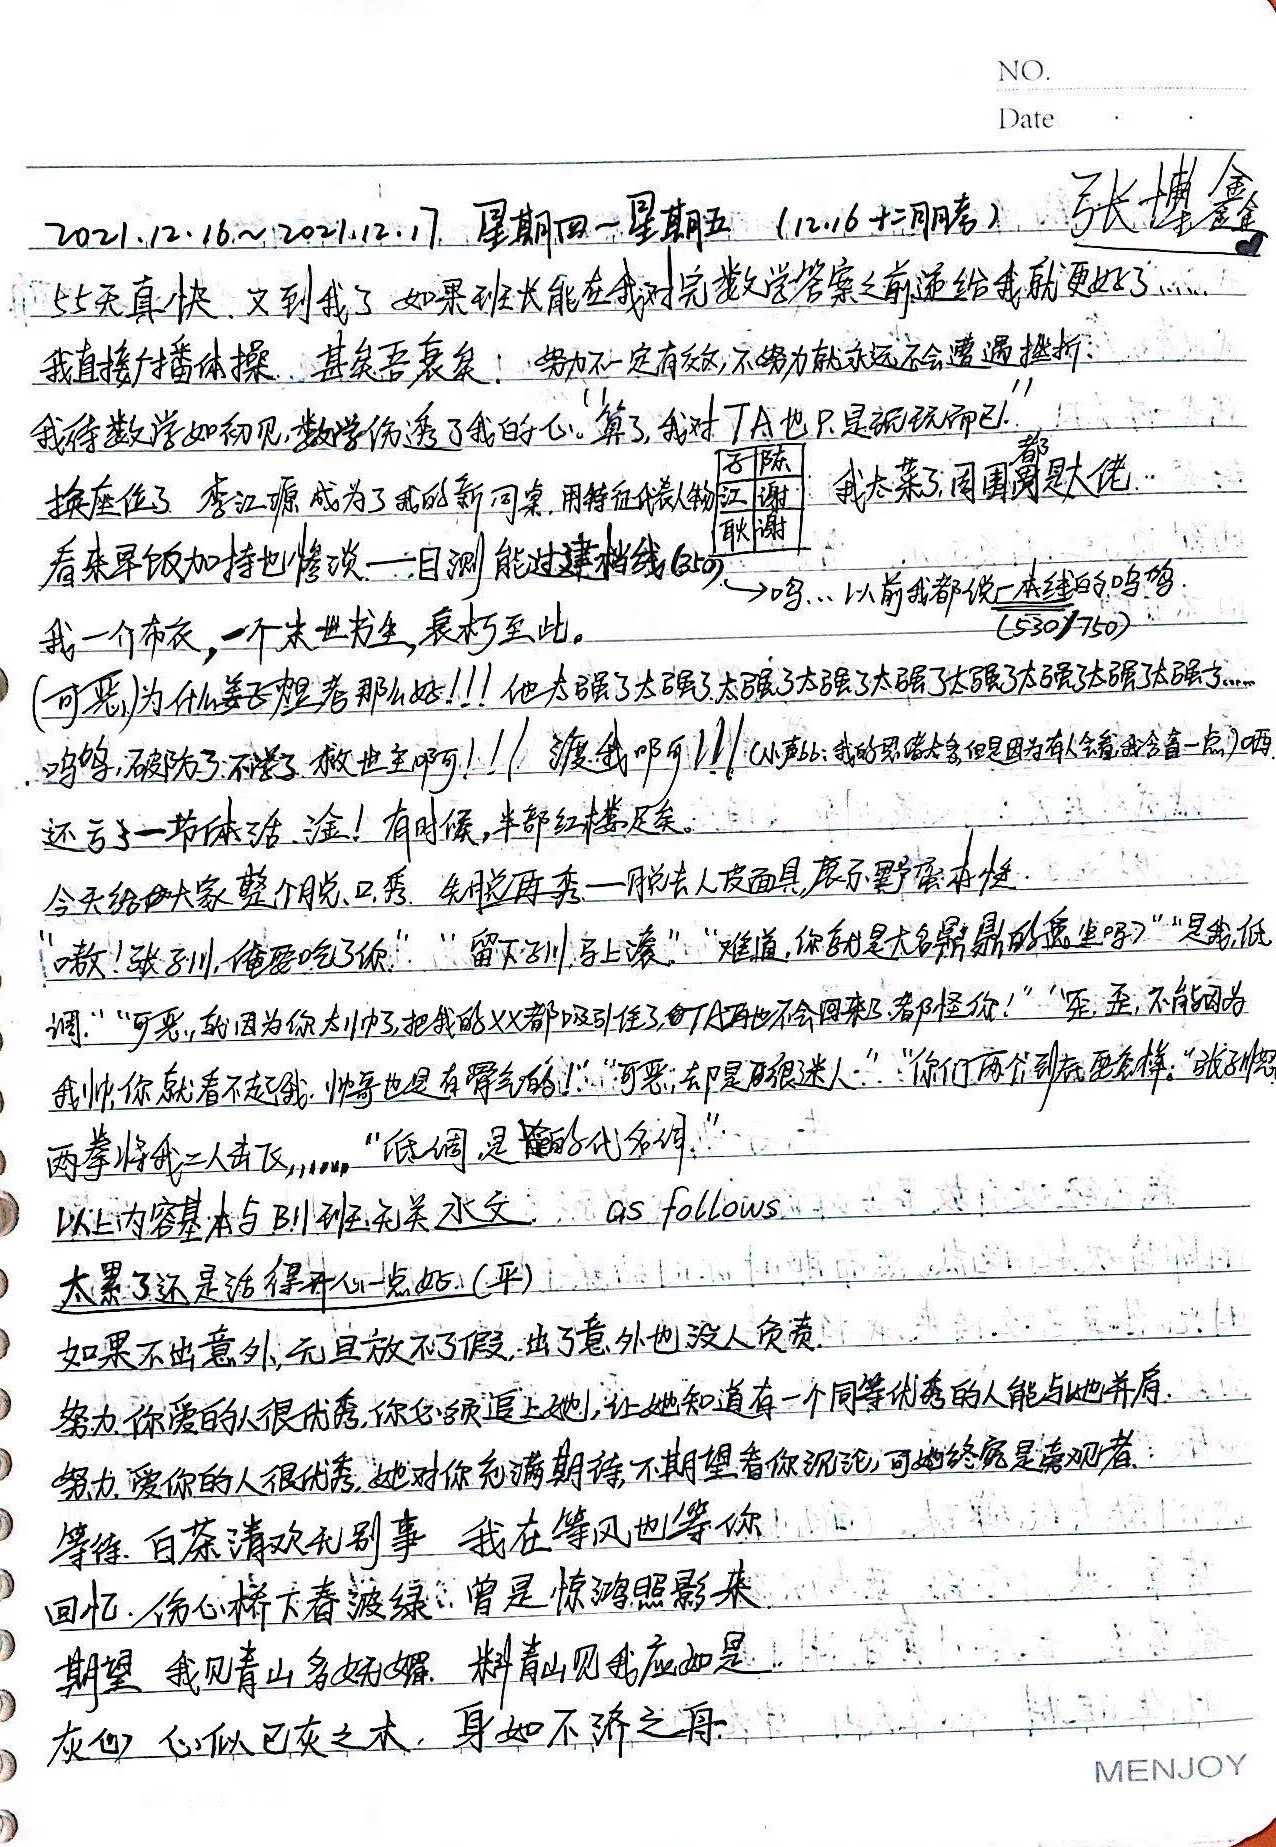 NO.
Date
2021.12.16~2021.12.17 星期四—星期五 (12.16十二月月考) 张博鑫
55天真快 又到我了 如果班长能在我对完数学答案之前递给我就更好了……
我直接广播体操 甚矣吾衰矣! 努力不一定有效,不努力就永远不会遭遇挫折.
我待数学如初见,数学伤透了我的心."算了,我对TA也只是玩玩而已."
换座位了 李江源成为了我的新同桌.用特征代表人物
子 陈
江 谢
耿 谢
我太菜了,周围都是大佬…
看来早饭加持也惨淡—目测能过建档线(350)
→呜...以前我都说一本线的呜呜.
(530/750)
我一个布衣,一个末世书生,衰朽至此。
(可恶)为什么姜子煜考那么好!!!他太强了太强了太强了太强了太强了太强了太强了太强了太强了……
呜呜,破防了.不学了.救世主啊!!!渡我啊!!!(小声bb:我的思绪太多但是因为有人会看,我含蓄一点)哂
还亏了一节体活.淦!有时候,半部红楼足矣。
今天给大家整个脱口秀 先脱再秀—脱去人皮面具,展示野蛮本性.
"嗷!张子川,俺要吃了你." "留下子川,马上滚." "难道,你就是大名鼎鼎的 吗?""是我,低
调.""可恶,就因为你太帅了,把我的XX都吸引住了,TA再也不会回来了.都怪你!" "歪,歪,不能因为
我帅,你就看不起我.帅哥也是有骨气的!""可恶,却是很迷人.""你们两个到底要怎样."张子川怒
两拳将我二人击飞,…… "低调,是 的代名词."
以上内容基本与B11班无关水文. as follows
太累了还是活得开心一点好.(平)
如果不出意外,元旦放不了假.出了意外也没人负责.
努力.你爱的人很优秀,你必须追上她,让她知道有一个同等优秀的人能与她并肩.
努力.爱你的人很优秀,她对你充满期待,不期望看你沉沦,可她终究是旁观者.
等待.白茶清欢无别事 我在等风也等你
回忆.伤心桥下春波绿.曾是惊鸿照影来
期望 我见青山多妩媚.料青山见我应如是
灰 心似已灰之木.身如不济之舟.
MENJOY